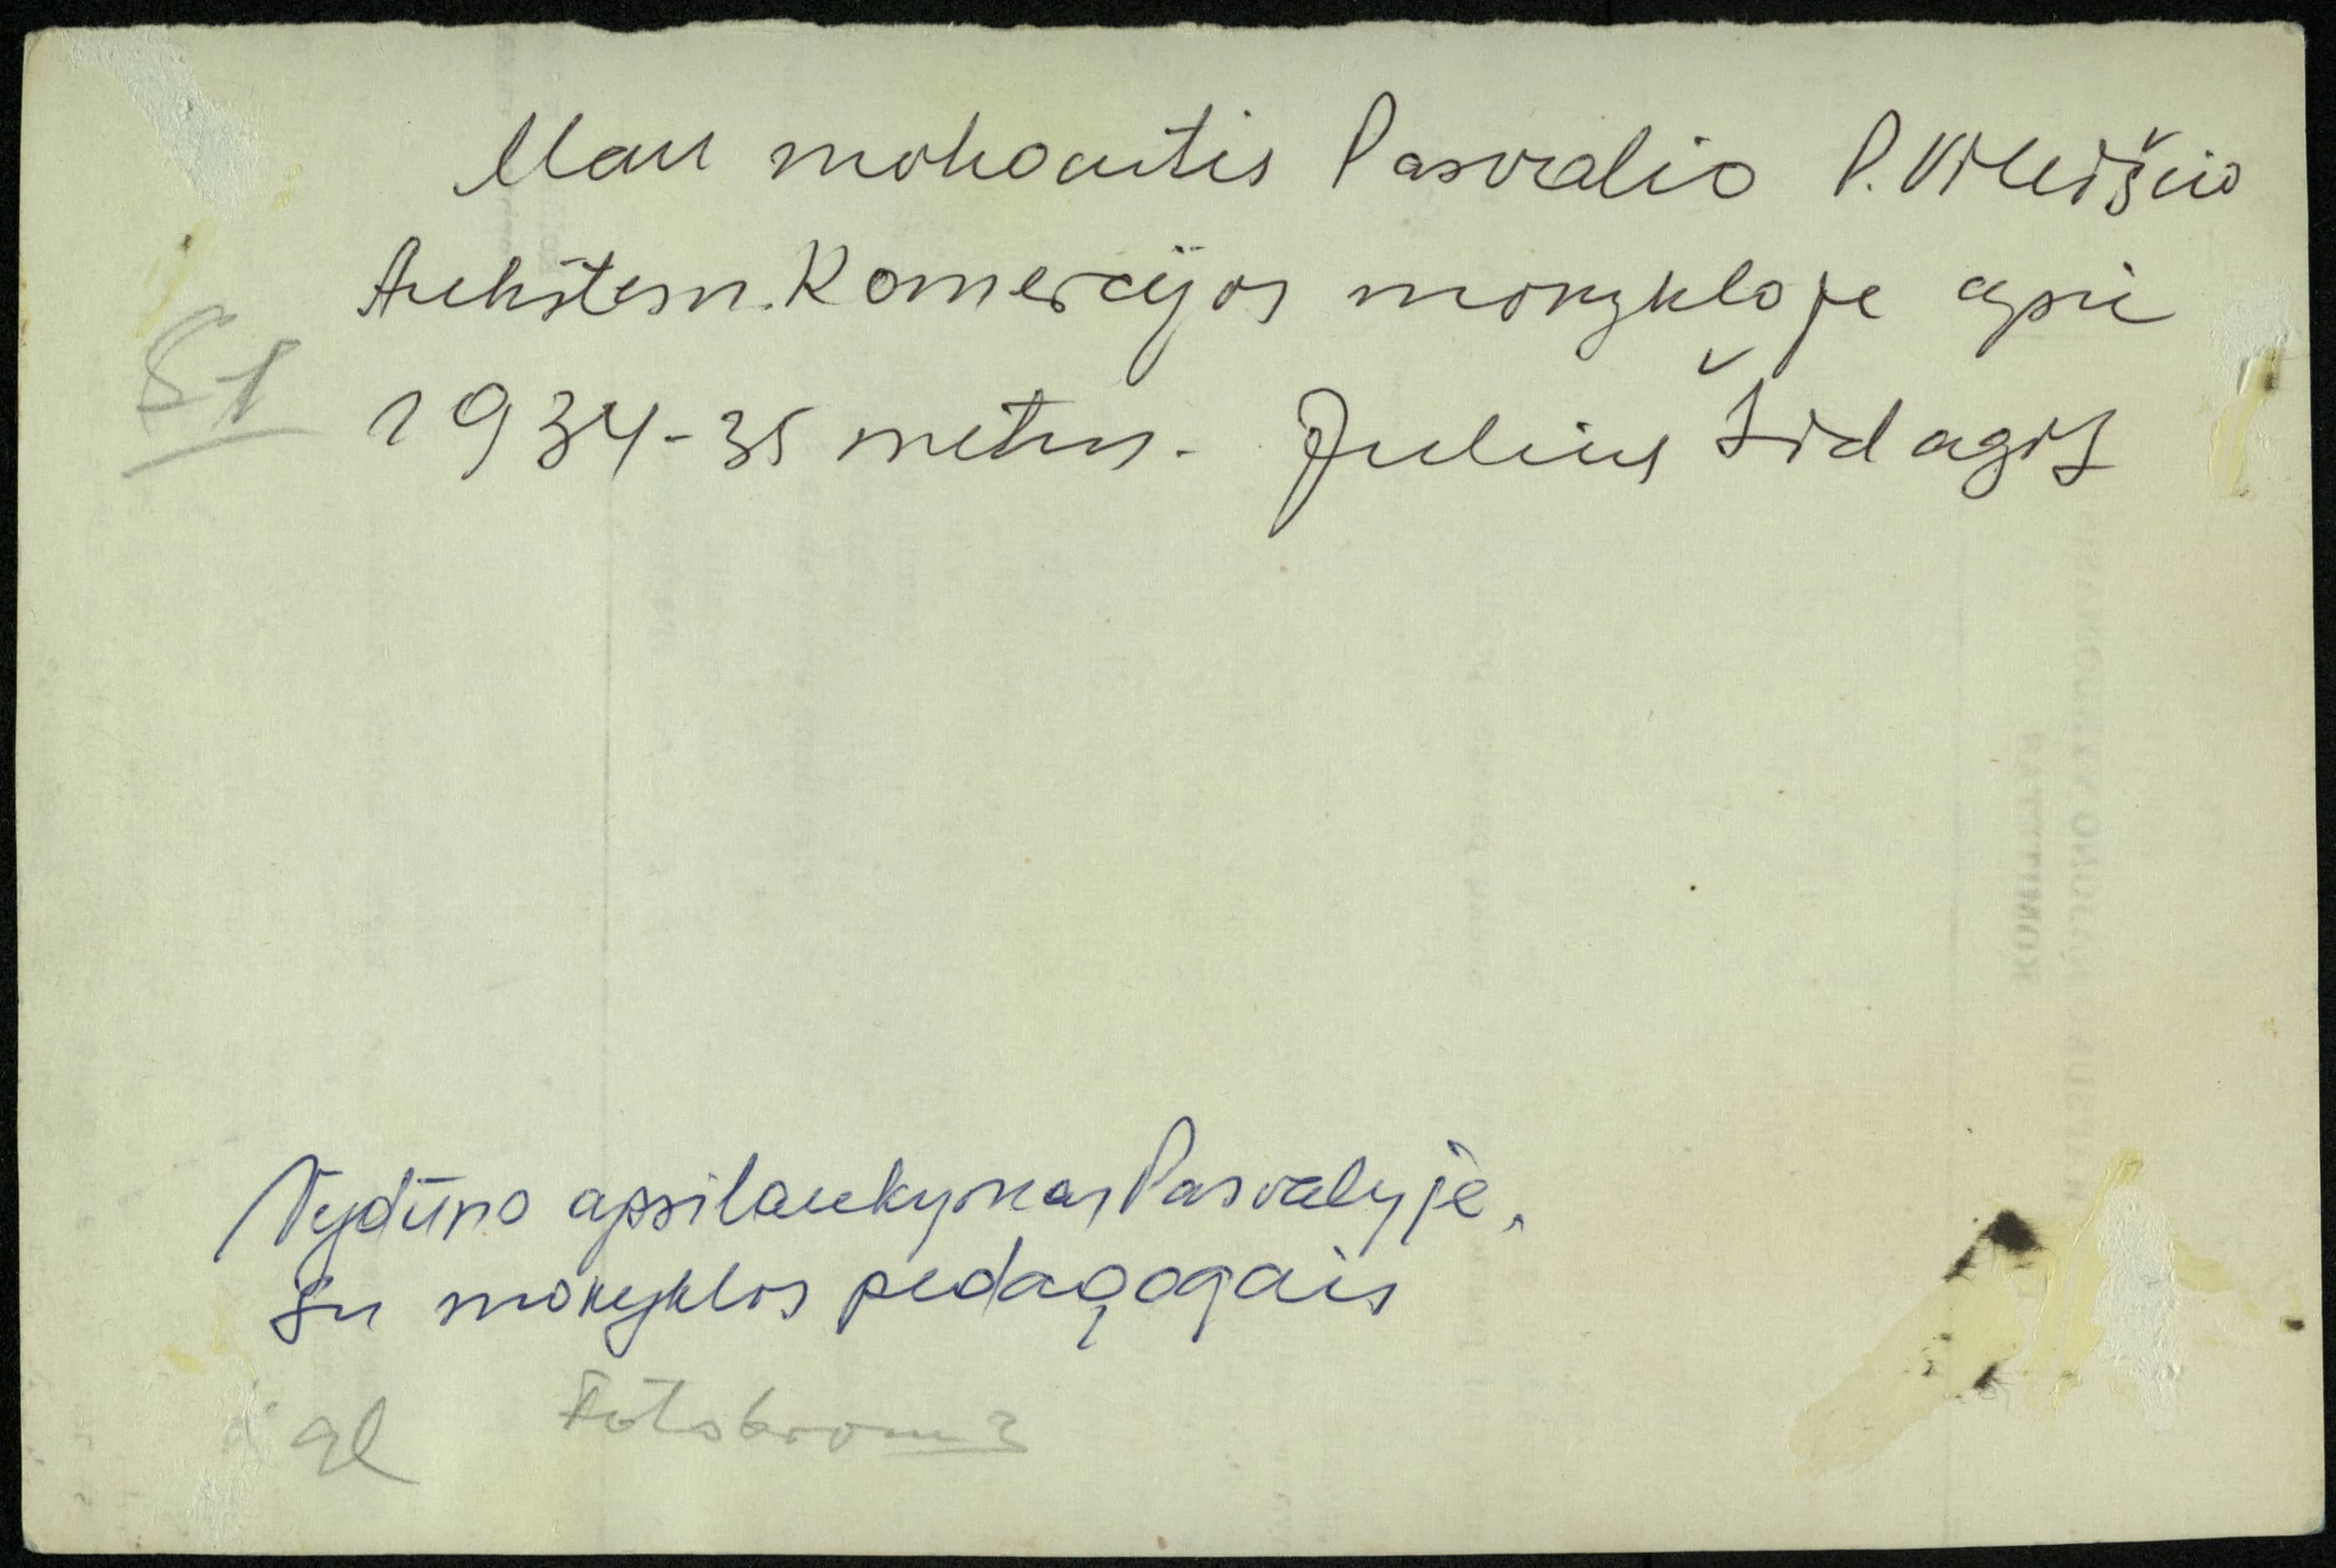 Man mokantis Pasvalio P. Vileišio
Aukštesn. Komercijos mokykloje apie
51
1934-35 metus. Julius Šidagis
Vydūno apsilankymas Pasvalyje,
su mokyklos pedagogais